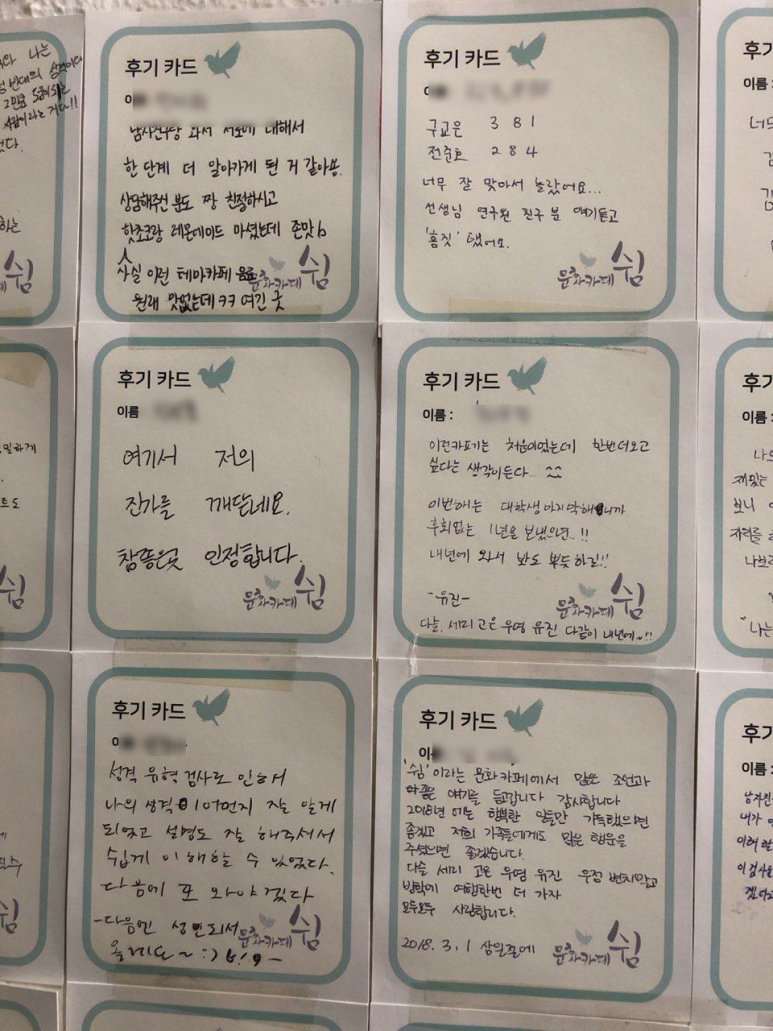 후기 카드
한 단계 더 알아가게 된 거 같아용.
상담해주신 분도 짱 친절하시고
핫초코랑 레몬에이드 마셨는데 존맛b
사실 이런 테마카페 음료
원래 맛없는데 ㅋㅋ 여긴 굿
문화카페 쉼
후기 카드
구교은 3 8 1
전준호 2 8 4
너무 잘 맞아서 놀랐어요...
선생님 연구원 친구 분 얘기듣고
'흠짓' 했어요.
문화카페 쉼
후기 카드
이름
여기서 저의
진가를 깨닫네요.
참좋은곳 인정합니다.
문화카페 쉼
후기 카드
이름 :
이런카페는 처음이었는데 한번더오고
싶다는 생각이든다... ^^
이번해는 대학생마지막해니까
후회없는 1년을 보냈으면..!!
내년에 와서 봐도 뿌듯하길!!
-유진-
다슬, 세미 고은 우영 유진 다같이 내년에~!!
문화카페 쉼
후기 카드
성격 유형 검사로 인해서
나의 성격이 어떤지 잘 알게
되었고 설명도 잘 해주셔서
쉽게 이해할 수 있었다.
다음에 또 와야겠다
-다음엔 성인되서
올게요~ :)
문화카페 쉼
후기 카드
'쉼'이라는 문화카페에서 많은 조언과
좋은 얘기를 듣고갑니다 감사합니다
2018년에는 행복한 일들만 가득했으면
좋겠고 저희 가족들에게도 많은 행운을
주셨으면 좋겠습니다.
다슬 세미 고은 우영 유진 우정 변치말고
방학에 여행한번 더 가자
모두모두 사랑합니다.
2018. 3. 1 삼일절에
문화카페 쉼
이름 :
이름 :
이름 :